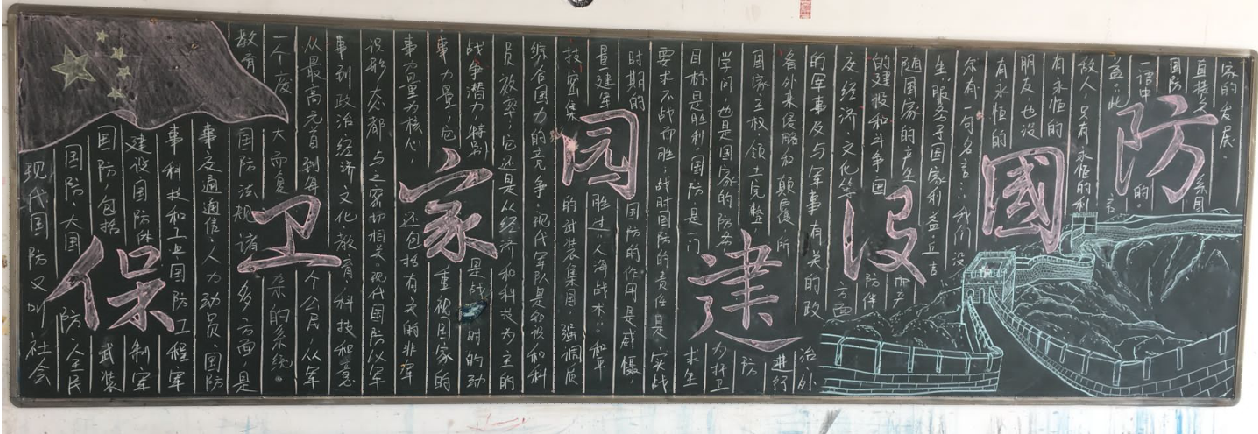 保卫家园 建设國防
现代国防又叫社会
国防、大国防、全民
国防，包括武装
建设国防体制军
事科技和工业国防工程军
事交通通信，人力动员国防
教育国防法规诸多方面是
一个庞大而复杂的系统。
从最高元首到每个公民，从军
事到政治经济文化教育，科技和意
识形态都与之密切相关现代国防以军
事力量为核心，还包括有关的非军
事力量，它重视国家的
战争潜力，特别是战时的动
员效率；它还是以经济和科技为主的
综合国力的竞争，现代军队是知识和科
技密集的武装集团，强调质
量建军胜过人海战术。和平
时期的国防的作用是威慑，
要求不战而胜；战时国防的责任是实战
目标是胜利，国防，是一门求生
学问，也是国家的防务，为捍卫
国家主权、领土完整，防
备外来侵略和颠覆，所进行
的军事及与军事有关的政治、外
及经济、文化等方面
的建设和斗争国防伴
随国家的产生而产
生，服务于国家利益，丘吉
尔有一句名言：我们没
有永恒的
朋友，也没
有永恒的
敌人，只有永恒的利
益。此言
一语中的
国防
直接关系国
家的发展。